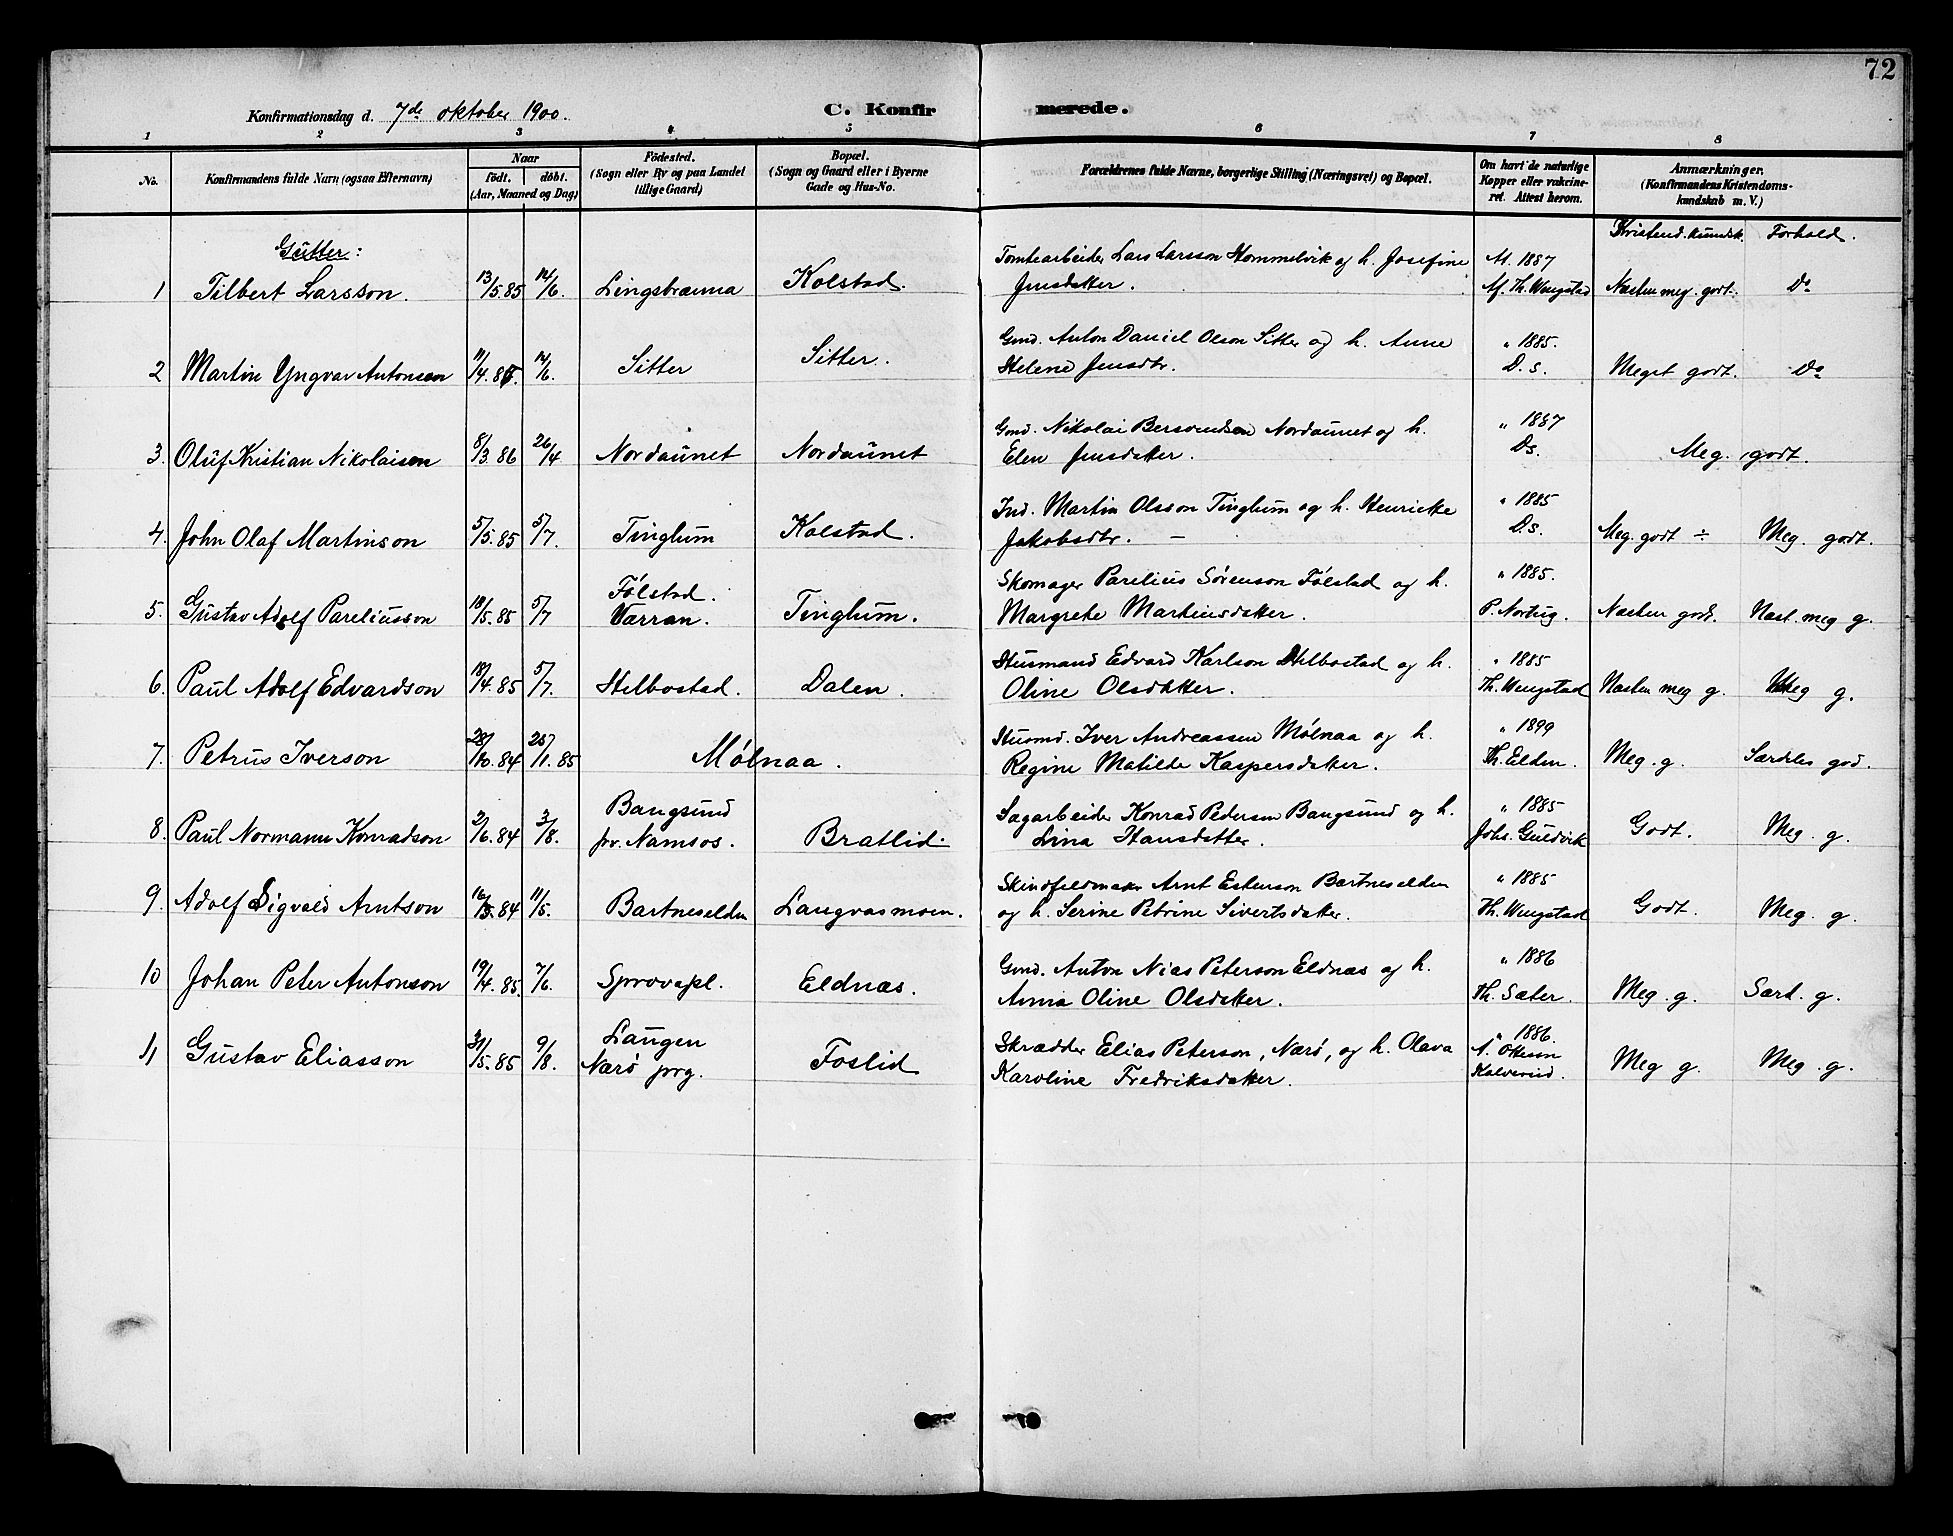 72
Konfirmationsdag d. 7de oktober 1900.
C. Konfirmerede.
1 2 3 4 5 6 7 8
No.
Konfirmandens fulde Navn (ogsaa Efternavn)
Naar
født. døbt.
(Aar, Maaned og Dag)
Fødested.
(Sogn eller By og paa Landet
tillige Gaard)
Bopæl.
(Sogn og Gaard eller i Byerne
Gade og Hus-No.
Forældrenes fulde Navne, borgerlige Stilling (Næringsvei) og Bopæl.
Om havt de naturlige
Kopper eller vakcine-
ret. Attest herom.
Anmærkninger.
(Konfirmandens Kristendoms-
kundskab m. V.)
Kristend. kundsk. Forhold.
Gutter:
1 Tilbert Larsson. 13/5.85 14/6. Lingsbrænna Kolstad. Tomtearbeider Lars Larsson Hommelvik og h. Josefine A. 1887
Jensdatter. Af. Th. Wengstad Næsten meg. godt. Do
2 Martin Yngvar Antonsen 11/4.85. 14/6. Sitter Sitter. Gmd. Anton Daniel Olson Sitter og h. Anne " 1885.
Helene Jensdtr. D.s. Meget godt. Do
3. Oluf Kristian Nikolaisen 8/3.86 26/4 Nordaunet Nordaunet Gmd. Nikolai Bersvendsen Nordaunet og h. " 1887
Elen Jensdatter. Ds. Meg. godt.
4. John Olaf Martinson 5/5.85 5/7. Tinglum Kolstad. Ind. Martin Olsson Tinglum og h. Henrikke " 1885
Jakobsdtr. — D.s. Meg. godt ÷ Meg. godt.
5. Gustav Adolf Pareliusson 18/5.85 5/7 Følstad. Værran. Tinglum. Skomager Parelius Sørenson Følstad og h. " 1885.
Margrete Martinsdatter. P. Nortug. Næsten godt. Næst. meg g.
6. Paul Adolf Edvardson 18/4.85 5/7. Helbostad. Dalen. Husmand Edvard Karlson Helbostad og h. " 1885
Oline Olsdatter. Th. Wengstad Næsten meg g. Meg g.
7. Petrus Iverson 28/10.84 25/1.85 Mølnaa. Husmd. Iver Andreassen Mølnaa og h. " 1899
Regine Matilde Kaspersdatter. Th. Elden. Meg. g. Særdeles god.
8. Paul Normann Konradson 2/6.84 3/8. Bangsund pr. Namsos. Bratlid. Sagarbeider Konrad Pedersen Bangsund og h. " 1885
Lina Hansdatter. Johs. Guldvik Godt. Meg. g.
9. Adolf Sigvald Arntson 16/3.84 11/5. Bartneselden Langvasmoen. Skindfeldmaker Arnt Estenson Bartneselden " 1885
og h. Serine Petrine Sivertsdatter. Th. Wengstad Godt. Meg. g.
10 Johan Peter Antonson 19/4.85. 7/6. Sprovapl. Eldnæs. Gmd. Anton Nias Peterson Eldnæs og h. " 1886
Anna Oline Olsdatter. Th. Sæter. Meg. g. Særd. g.
11 Gustav Eliasson 31/5.85 9/8. Laugen Nærø prg. Foslid Skrædder Elias Peterson, Nærø, og h. Olava " 1886.
Karoline Fredriksdatter. Kalversid. Meg g. Meg. g.